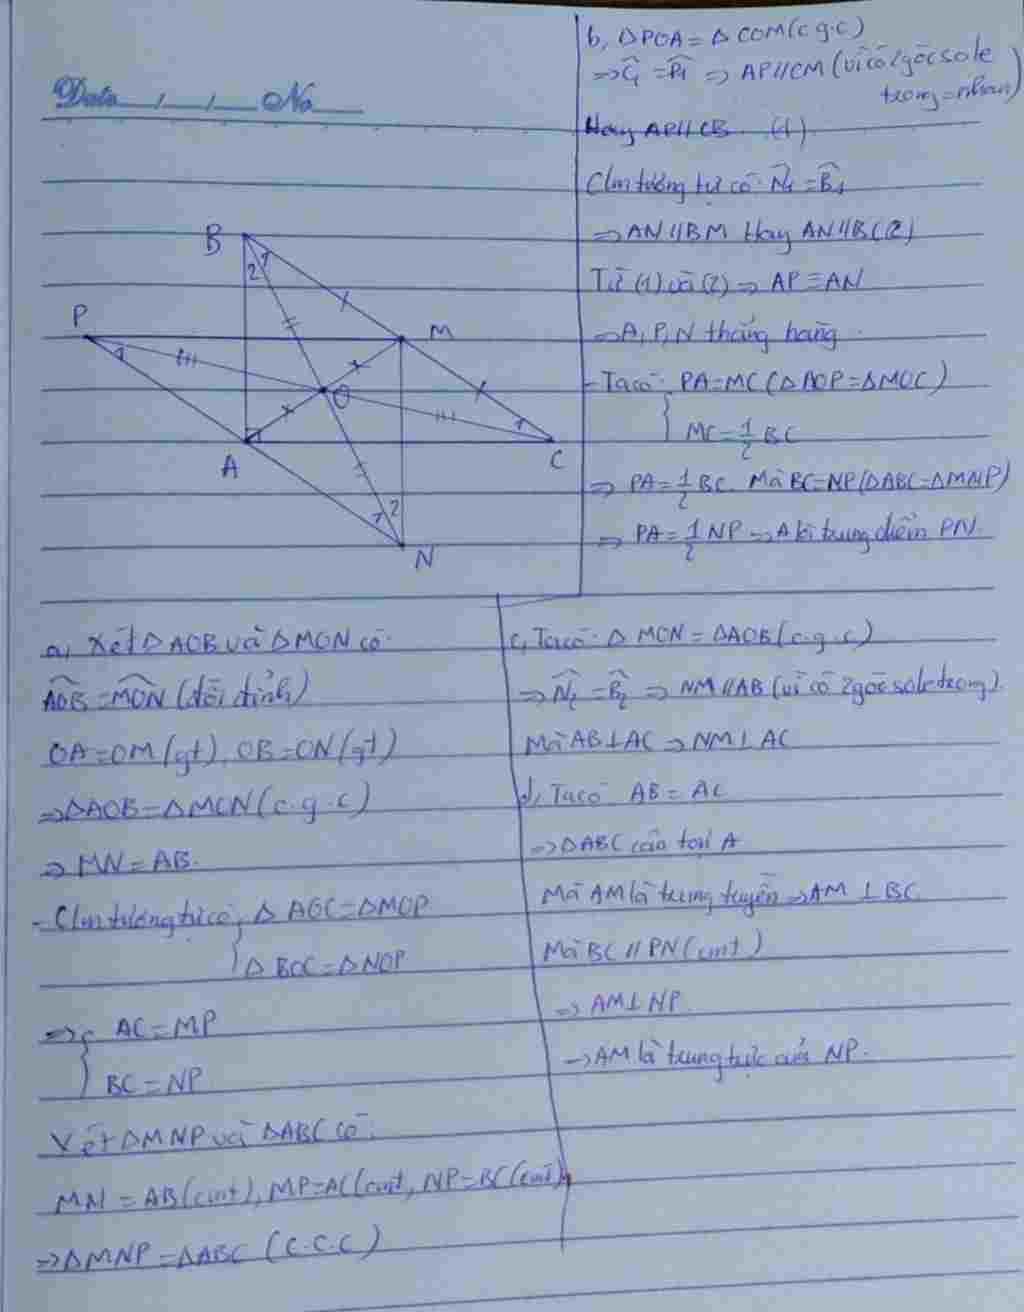 Date / / No
B
2 1
P
M
1
O
1
A
C
1 2
N
b, ΔPOA = ΔCOM (c.g.c)
⇒ Ĉ₁ = P̂₁ ⇒ AP // CM (vì có 2 góc sole
trong = nhau)
Hay AP // CB (1)
Cm tương tự có: N̂₁ = B̂₁
⇒ AN // BM Hay AN // BC (2)
Từ (1) và (2) ⇒ AP ≡ AN
⇒ A, P, N thẳng hàng
- Ta có: PA = MC (ΔAOP = ΔMOC)
MC = 1/2 BC
⇒ PA = 1/2 BC. Mà BC = NP (ΔABC = ΔMNP)
⇒ PA = 1/2 NP ⇒ A là trung điểm PN.
a, Xét ΔAOB và ΔMON có:
AOB = MON (đối đỉnh)
OA = OM (gt), OB = ON (gt)
⇒ ΔAOB = ΔMON (c.g.c)
⇒ MN = AB.
- Cm tương tự có, ΔAOC = ΔMOP
ΔBOC = ΔNOP
⇒ AC = MP
BC = NP
Xét ΔMNP và ΔABC có:
MN = AB (cmt), MP = AC (cmt, NP = BC (cmt)
⇒ ΔMNP = ΔABC (c.c.c)
c, Ta có: ΔMON = ΔAOB (c.g.c)
⇒ N̂₂ = B̂₂ ⇒ NM // AB (vì có 2 góc sole trong).
Mà AB ⊥ AC ⇒ NM ⊥ AC
d, Ta có AB = AC
⇒ ΔABC cân tại A
Mà AM là trung tuyến ⇒ AM ⊥ BC
Mà BC // PN (cmt)
⇒ AM ⊥ NP.
⇒ AM là trung trực của NP.